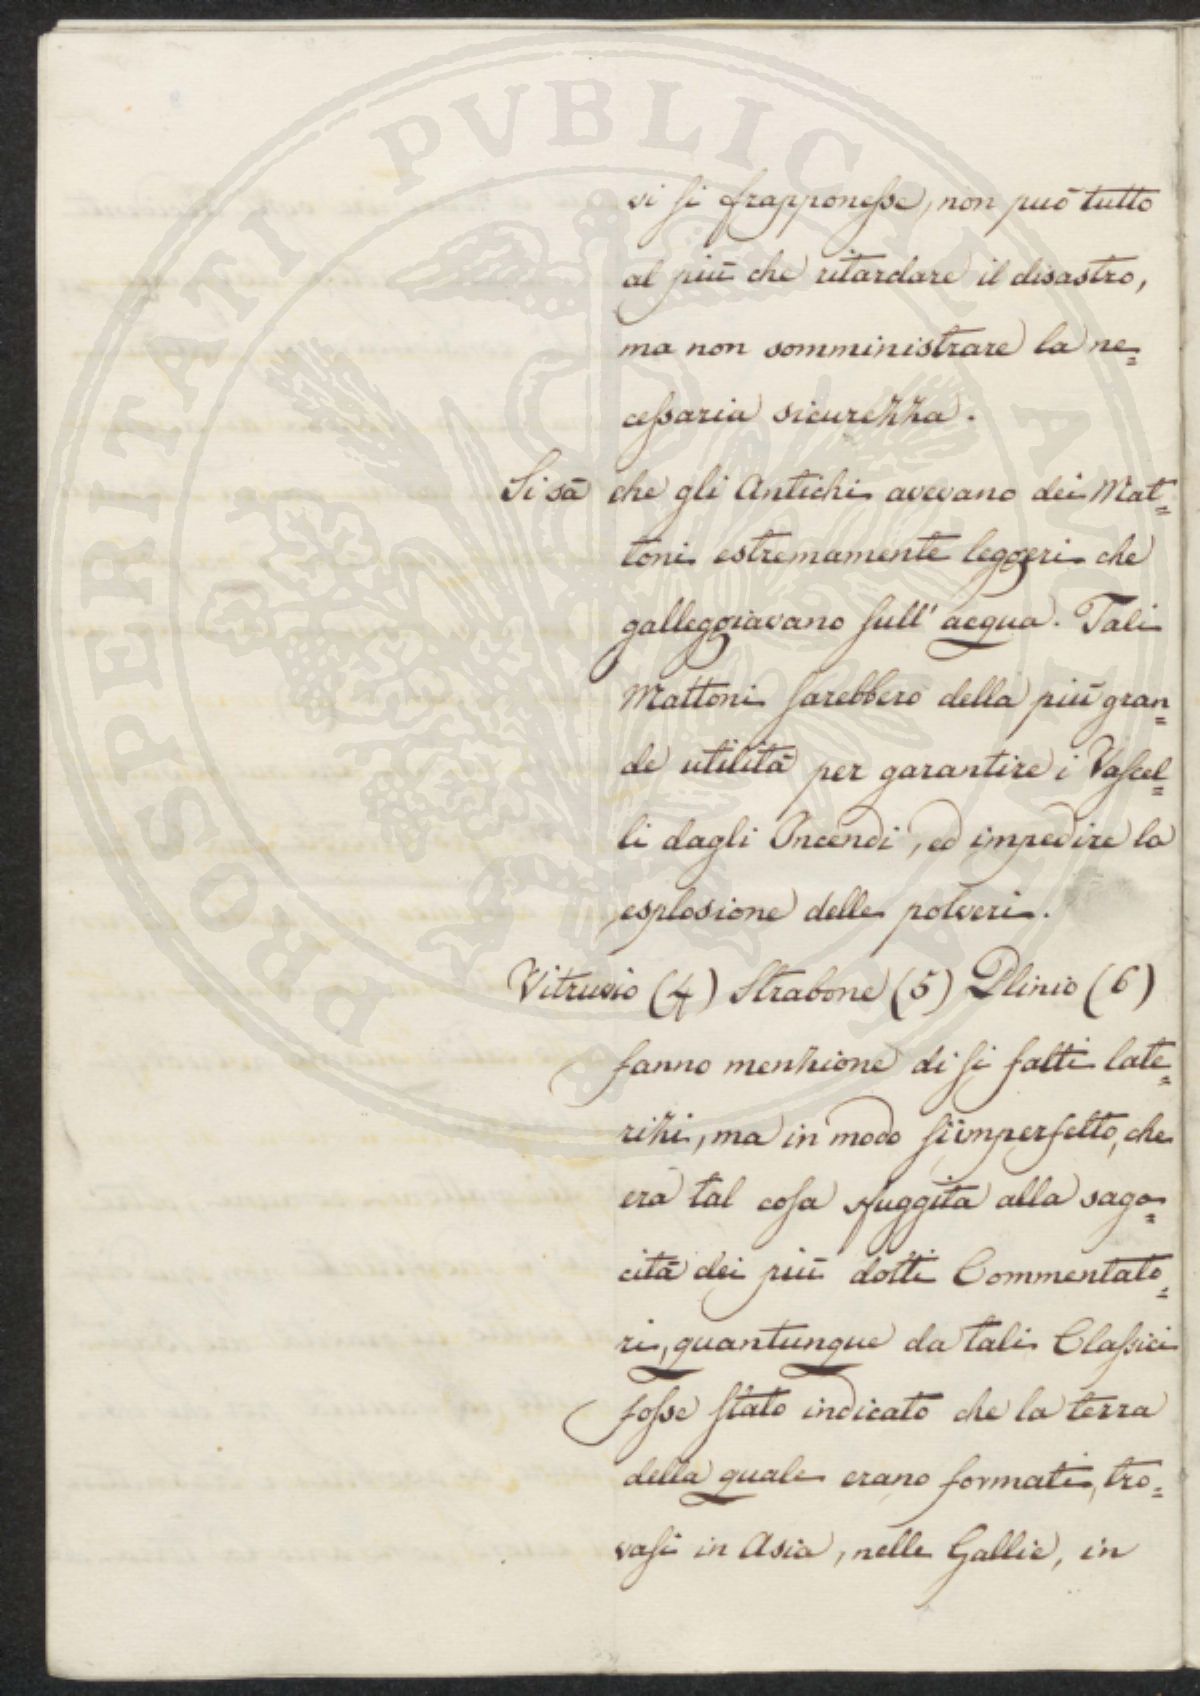 PROSPERITATI PVBLICAE AVGENDAE
vi si frapponesse, non può tutto
al più che ritardare il disastro,
ma non somministrare la ne=
cessaria sicurezza.
Si sà che gli Antichi avevano dei Mat=
toni estremamente leggeri che
galleggiavano sull' acqua. Tali
Mattoni sarebbero della più gran=
de utilità per garantire i Vascel=
li dagli Incendi, ed impedire la
esplosione delle polveri.
Vitruvio (4) Strabone (5) Plinio (6)
fanno menzione di si fatti late=
rizi, ma in modo si imperfetto, che
era tal cosa sfuggita alla saga=
cità dei più dotti Commentato=
ri, quantunque da tali Classici
fosse stato indicato che la terra
della quale erano formati, tro=
vasi in Asia, nelle Gallie, in